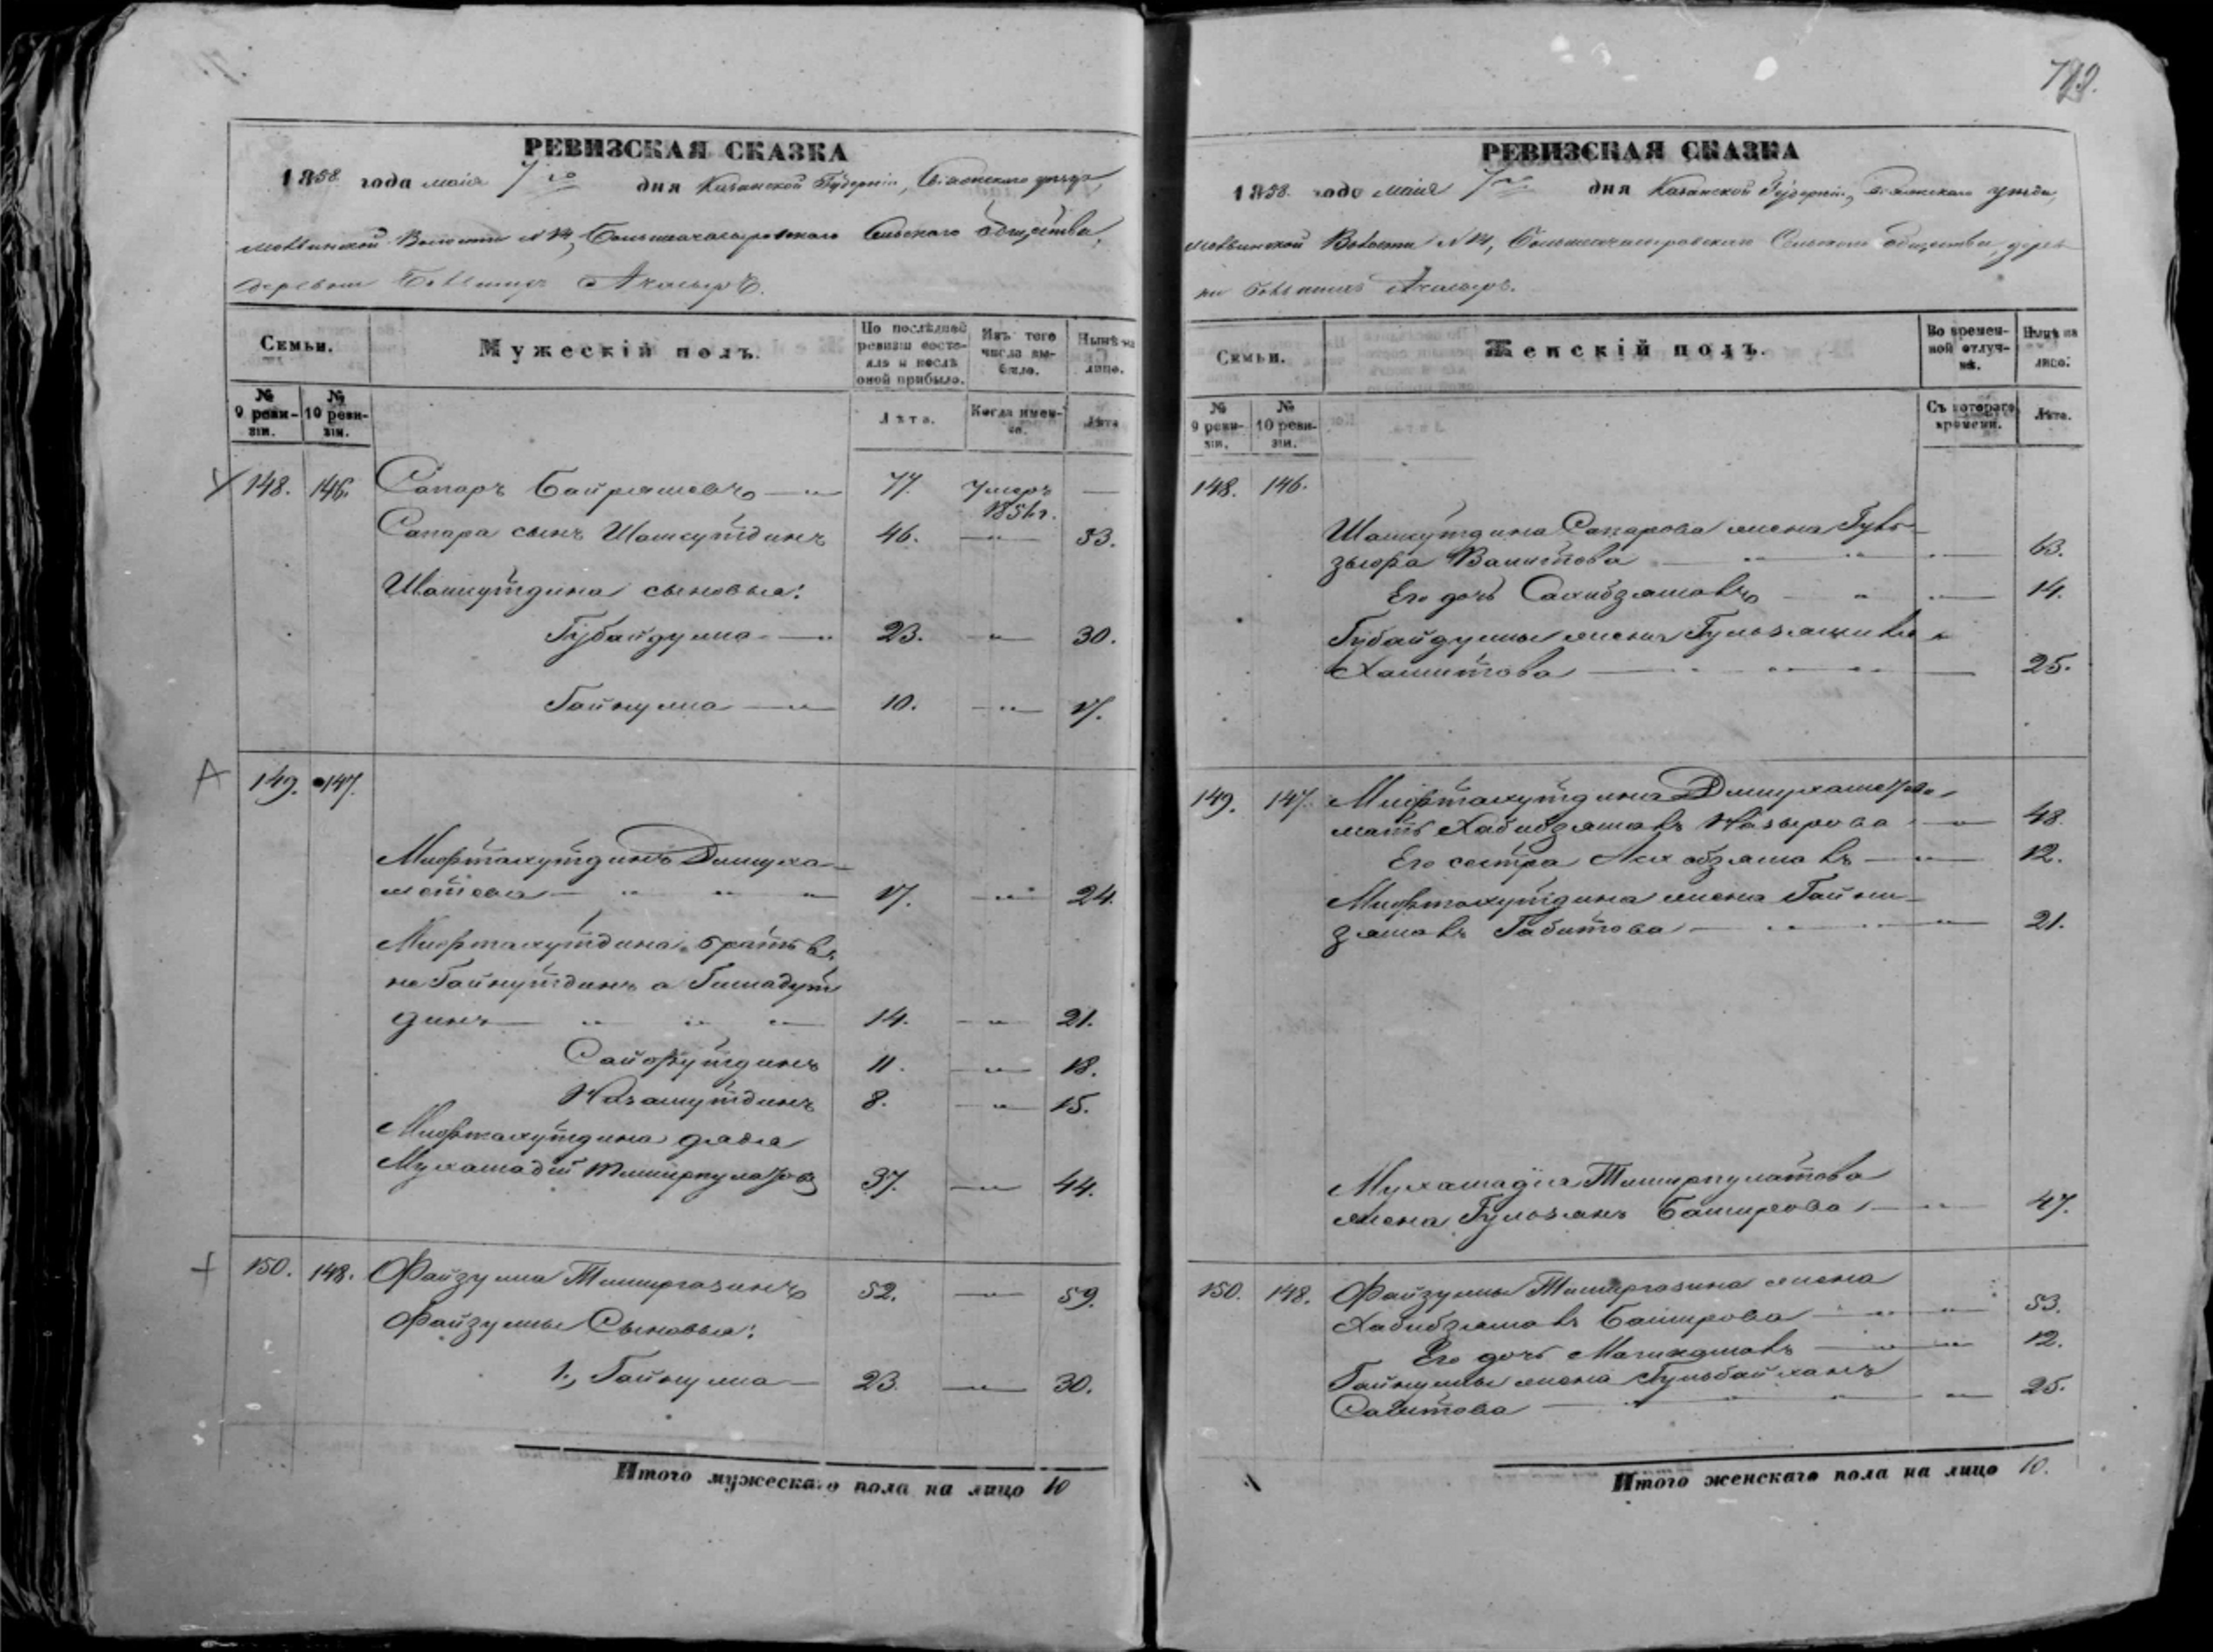 719.
РЕВИЗСКАЯ СКАЗКА
1858 года маія 7го дня Казанской Губерніи, Свіяжскаго уезда,
Волости № 14, Сельскаго общества,
деревни Большихъ Ачасыръ.
Семьи.
Мужескій полъ.
По послѣдней ревизіи состояло и послѣ оной прибыло.
Изъ того числа выбыло.
Нынѣ на лицо.
№ 9 ревизіи.
№ 10 ревизіи.
Лѣта.
Когда именно.
Лѣта
148. 146. Сапаръ Байряшевъ 77. Умеръ 1851г. —
Сапара сынъ Шамсутдинъ 46. — 53.
Шамсутдина сыновья:
Губайдулла 23. — 30.
Гайнулла 10. — 17.
149. 147.
Мифтахутдинъ Динмуха-
метевъ 17. — 24.
Мифтахутдина братья
не Гайнутдинъ а Гимадут
динъ 14. — 21.
Сайфутдинъ 11. — 18.
Низамутдинъ 8. — 15.
Мифтахутдина дядя
Мухамадій Тимирпулатовъ 37. — 44.
150. 148. Файзулла Тимиргазинъ 52. — 59.
Файзуллы Сыновья:
1., Гайнулла 23. — 30.
Итого мужескаго пола на лицо 10
РЕВИЗСКАЯ СКАЗКА
1858. года маія 7го дня Казанской Губерніи, Свіяжскаго уезда,
Волости № 14, Сельскаго общества, дерев
ни Большихъ Ачасыръ.
Семьи.
Женскій полъ.
Во временной отлучкѣ.
Нынѣ на лицо.
№ 9 ревизіи.
№ 10 ревизіи.
Съ котораго времени.
Лѣта.
148. 146.
Шамсутдина Сапарова жена Гуль-
зюфра Вахитова — 63.
Его дочь Сахибзямалъ — 14.
Губайдуллы жена
Хамитова — 25.
149. 147. Мифтахутдина Динмухаметева
мать Хабибзямалъ Назырова — 48.
Его сестра — 12.
Мифтахутдина жена Гайни-
зямалъ Габитова — 21.
Мухамадія Тимирпулатова
жена Гульзянъ Баширова — 47.
150. 148. Файзуллы Тимиргазина жена
Хабибзямалъ Баширова — 53.
Его дочь — 12.
Гайнуллы жена Гульбайханъ
Сагитова — 25.
Итого женскаго пола на лицо 10.